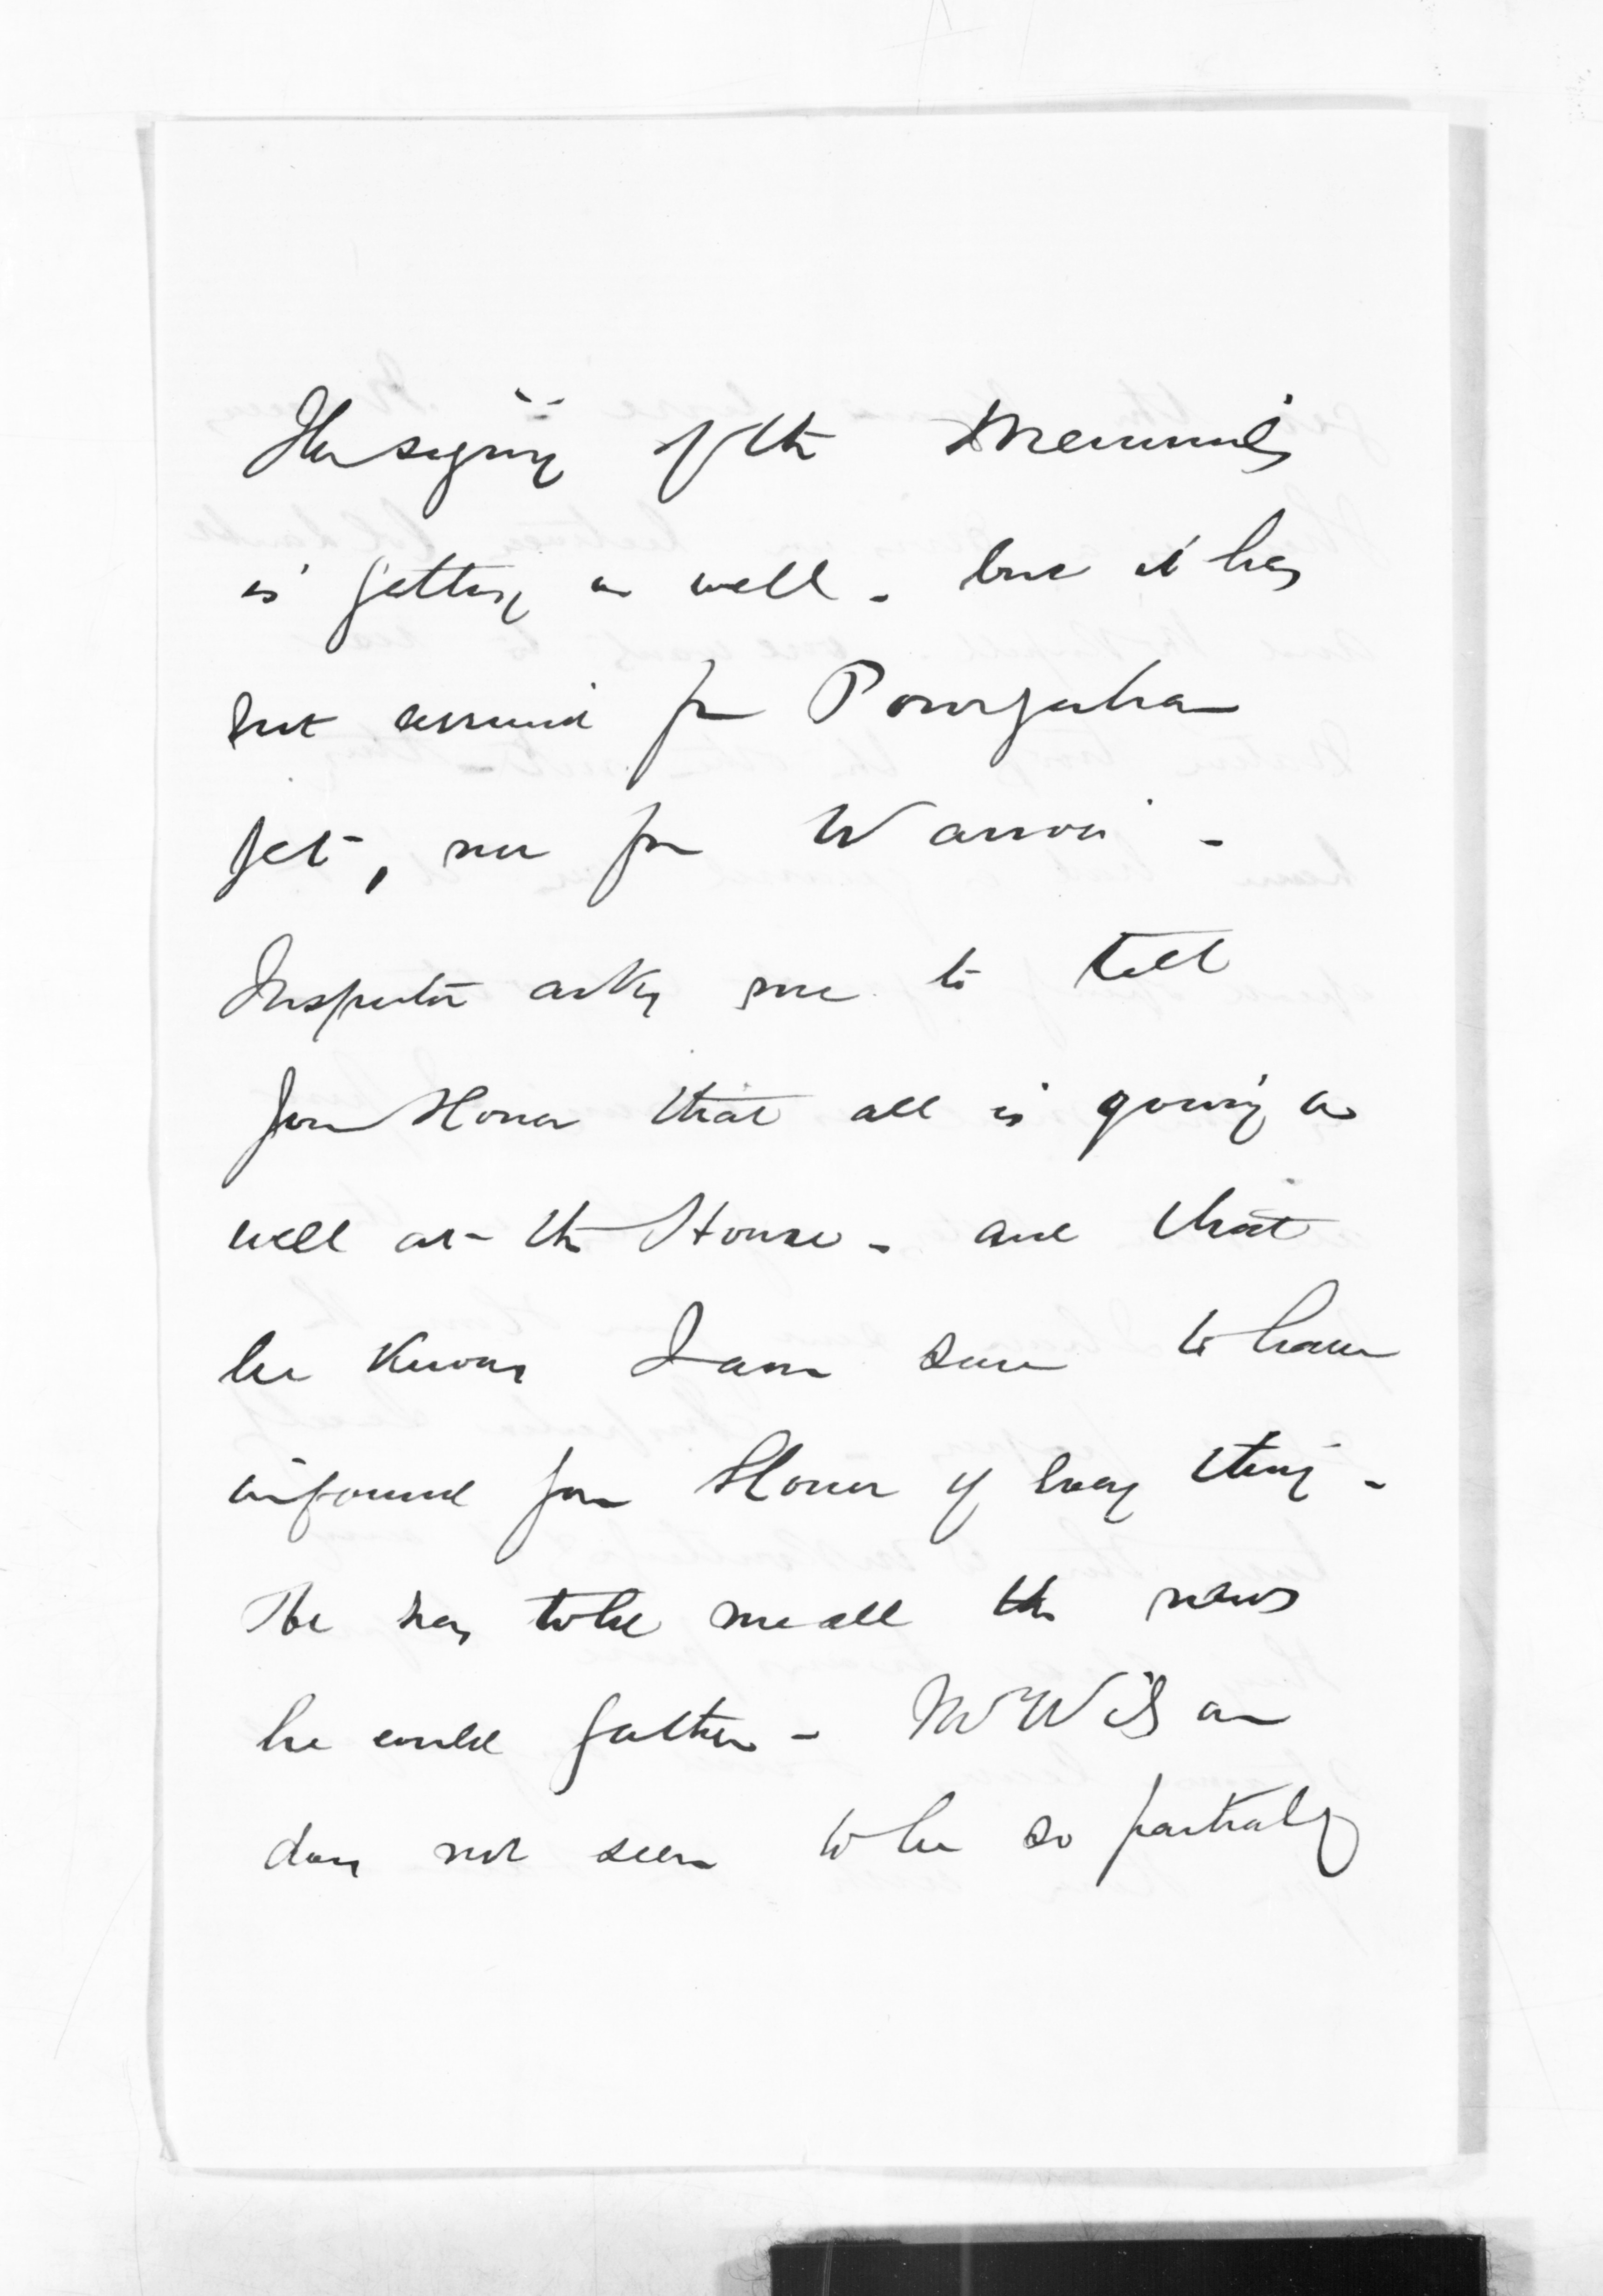 The signing of the Memorials
is getting on well - but it has
not arrived from Porongahau
yet, nor from Wairoa -
Inspector asks me to tell
your Honor that all is going on
well at the House - and that
he knows I am sure to have
informed your Honor of every thing -
He has told me all the news
he could gather - Mr Wilson
does not seem to be so partial